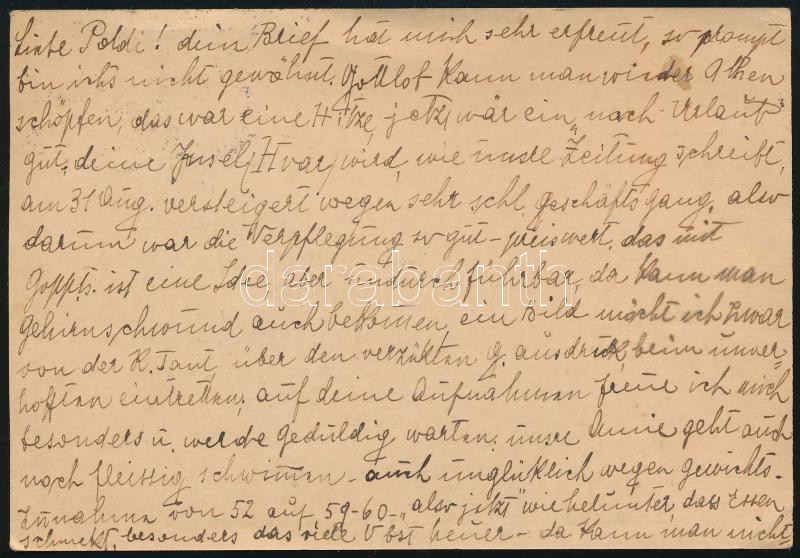 Liebe Poldi! dein Brief hat mich sehr erfreut, so prompt
bin ichs nicht gewöhnt. Gottlob kann man wieder Athem
schöpfen, das war eine Hitze, jetz wär ein "nach-Urlaub"
gut, deine Insel (Hvar) wird, wie unsre Zeitung schreibt,
am 31 Aug. versteigert wegen sehr schl. geschäftsgang, also
darum war die Verpflegung so gut - preiswert, das mit
ist eine Idee, aber undurchführbar, da kann man
Gehirnschwund auch bekomen, ein Bild möcht ich zwar
von der K. Tant, über den verzükten g. ausdruk, beim unver=
hofften eintretten; auf deine Aufnahmen freue ich mich
besonders u. werde geduldig warten; unsre Annie geht auch
noch fleissig schwimen - auch unglüklich wegen gewichts-
zunahme von 52 auf 59-60 - "also jetzt" wie herunter, das Essen
schmekt, besonders das viele Obst heuer - da kann man nicht
darabanth